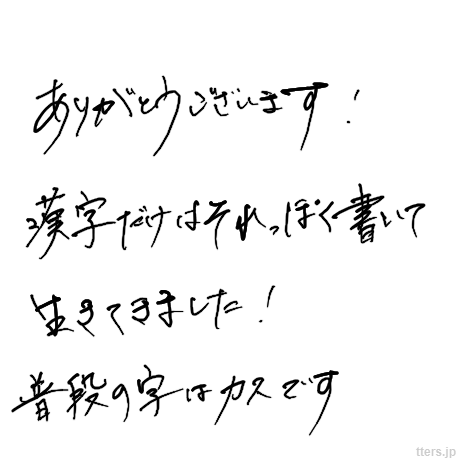 ありがとうございます！
漢字だけはそれっぽく書いて
生きてきました！
普段の字はカスです
tters.jp